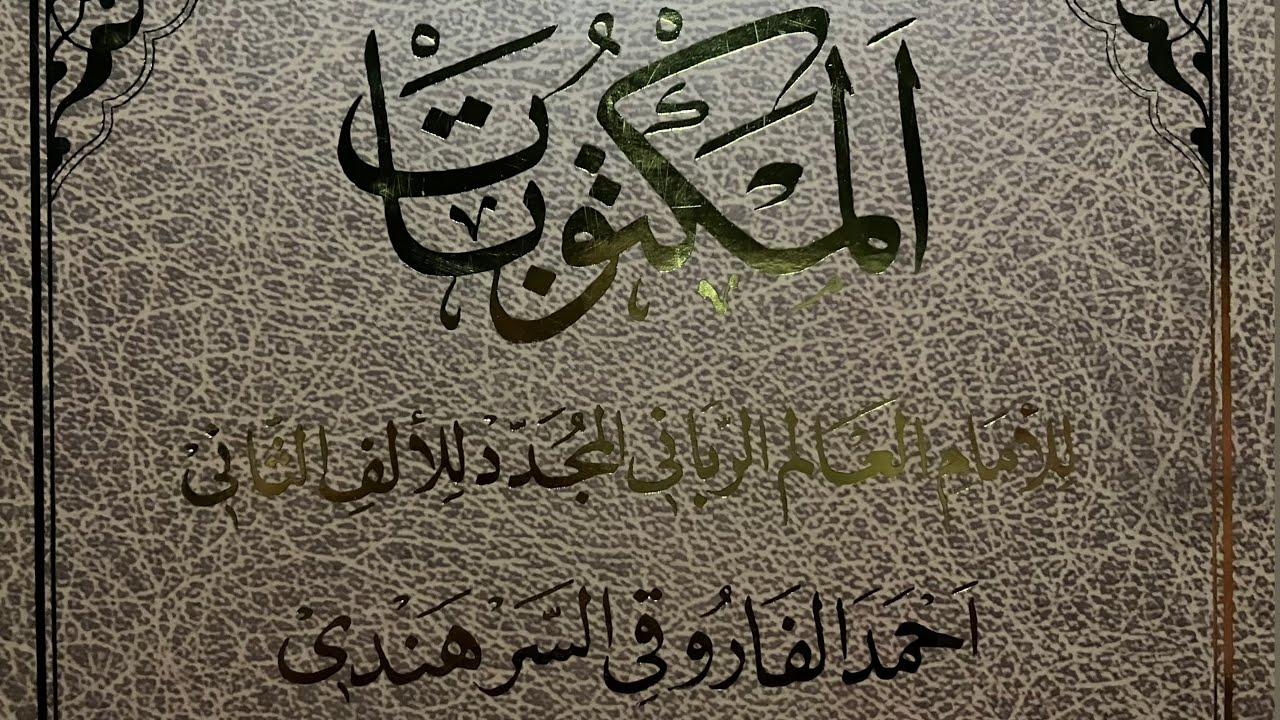 اَلْمَكْتُوبَات
لِلْاِمَامِ الْعَالِمِ الرَّبَانِي الْمُجَدِّدْ لِلْأَلْفِ الثَّانِيْ
اَحْمَدَ الْفَارُوقِي السَّرْهَنْدِيْ